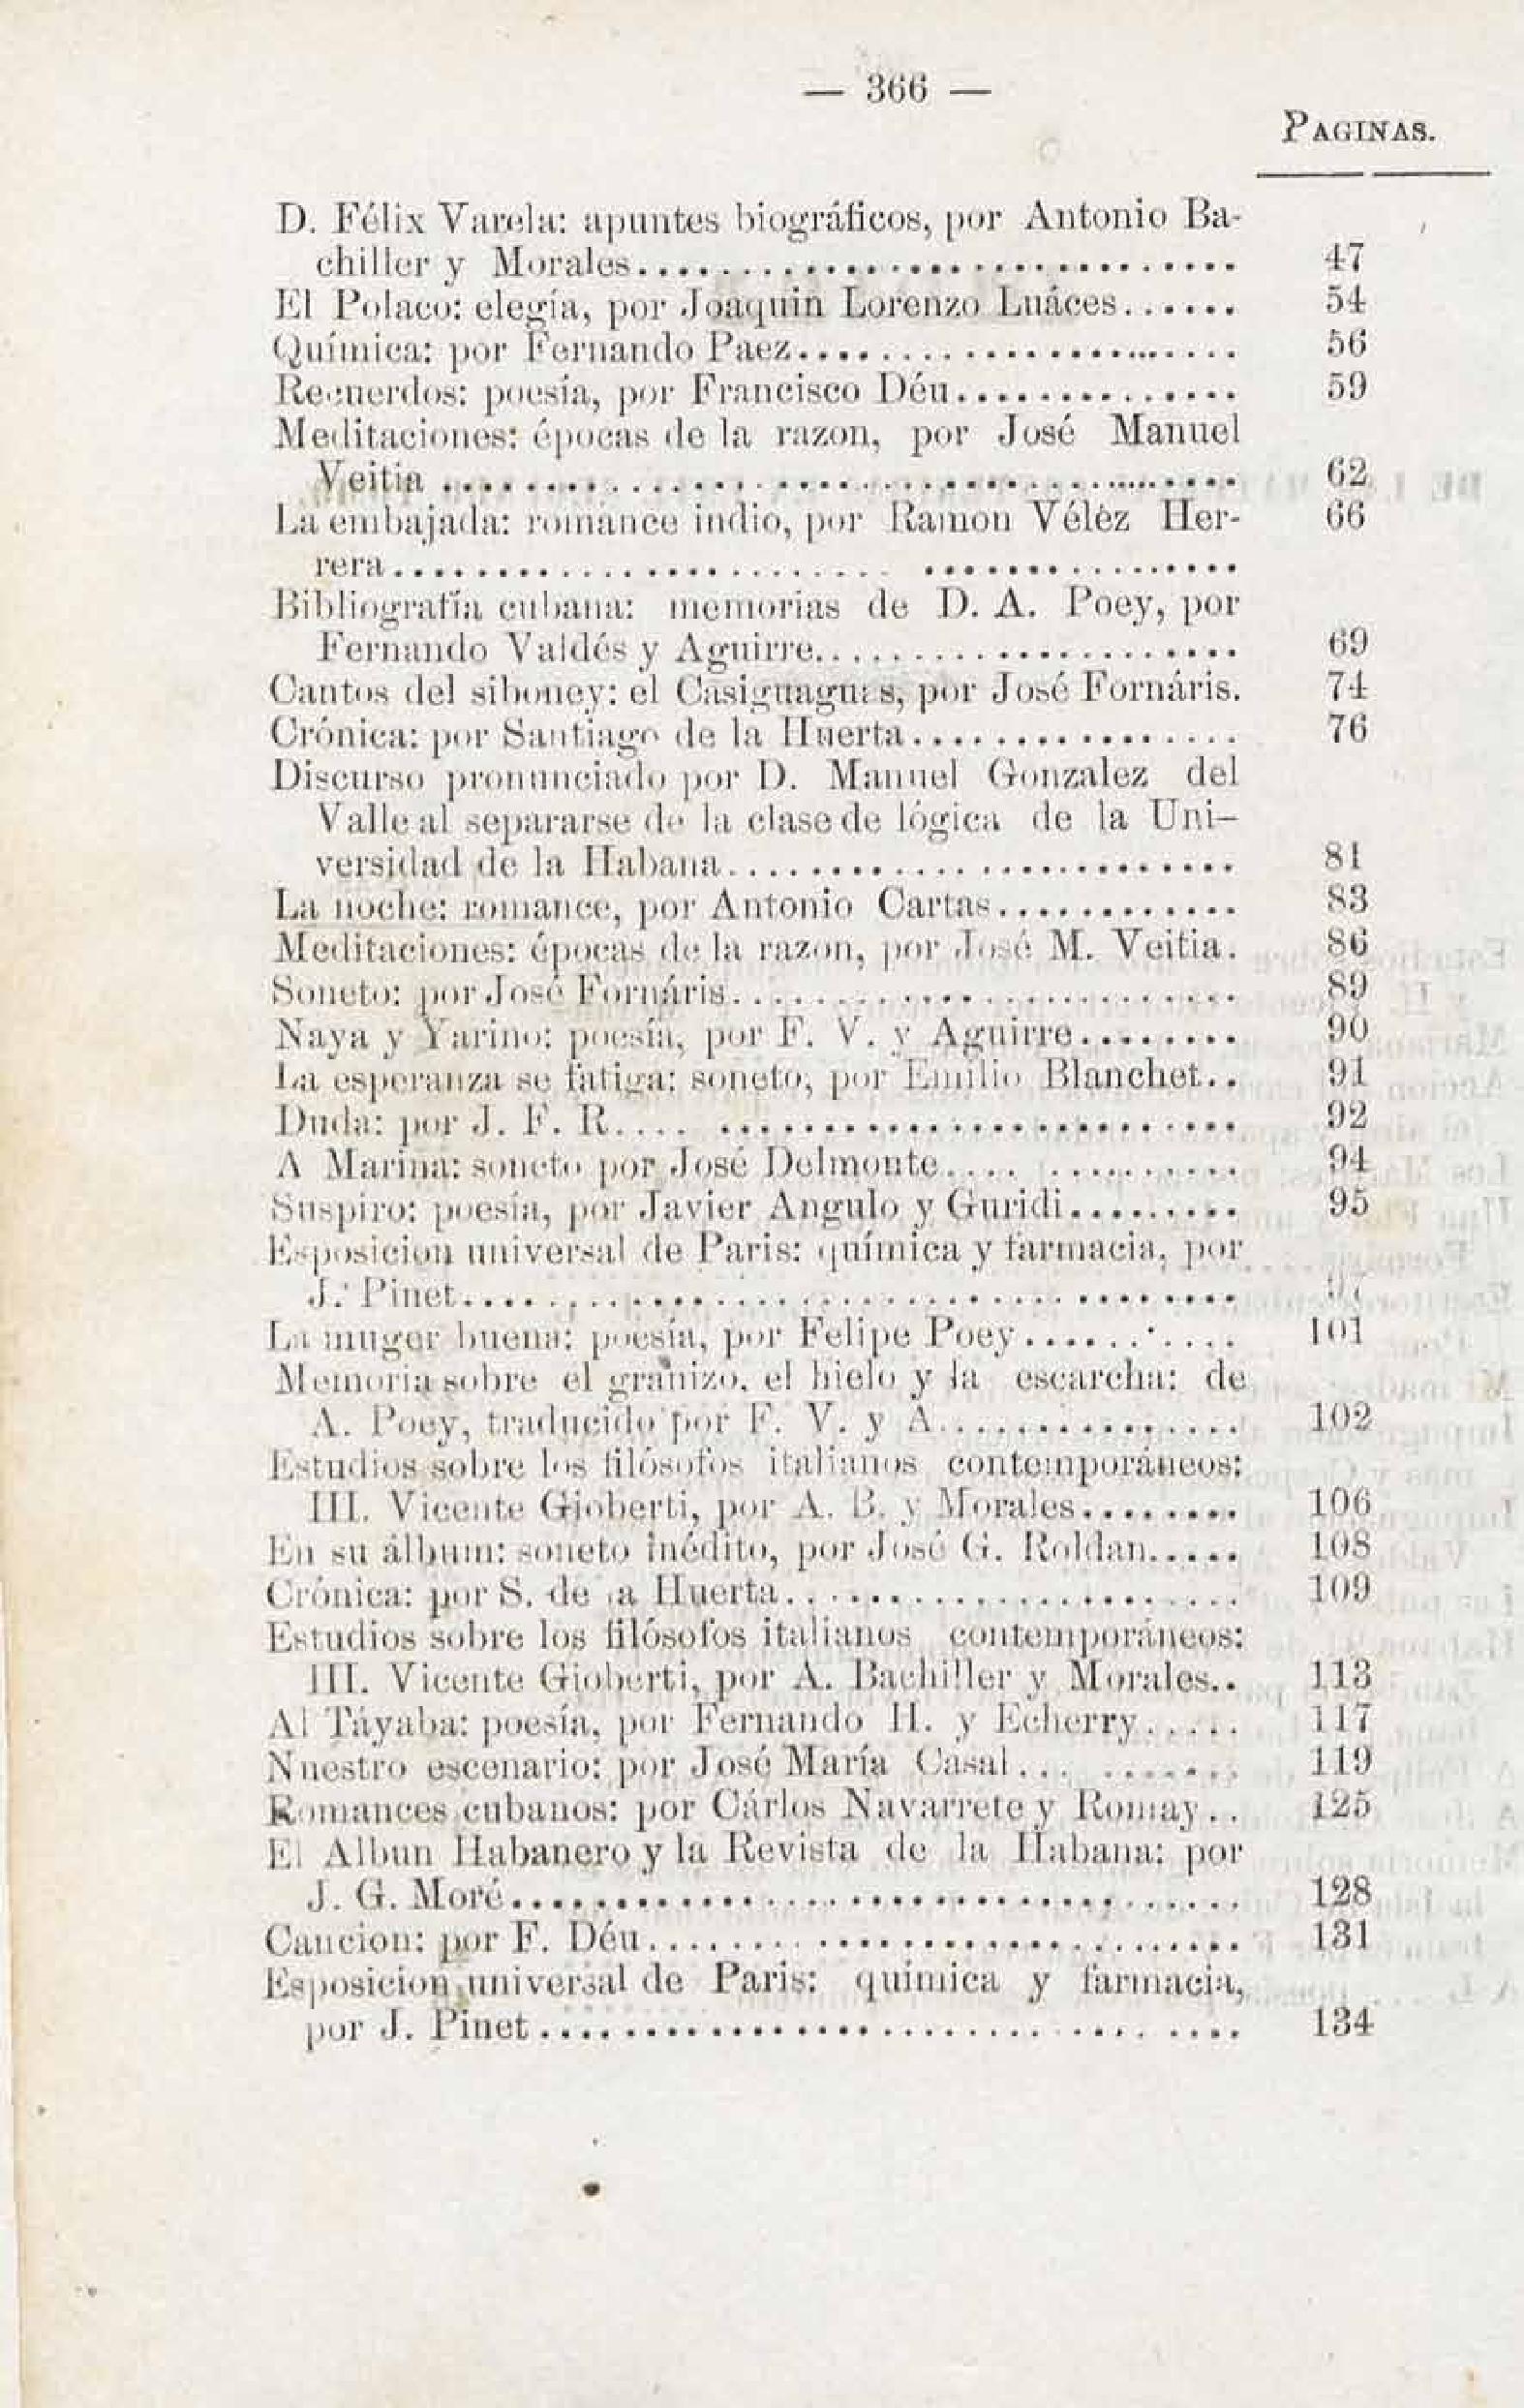 — 366 —
PAGINAS.
D. Félix Varela: apuntes biográficos, por Antonio Ba-
chiller y Morales.................................. 47
El Polaco: elegía, por Joaquin Lorenzo Luáces...... 54
Química: por Fernando Paez........................ 56
Recuerdos: poesía, por Francisco Déu.............. 59
Meditaciones: épocas de la razon, por José Manuel
Veitia ........................................ 62
La embajada: romance indio, por Ramon Vélez Her- 66
rera........................ ................
Bibliografía cubana: memorias de D. A. Poey, por
Fernando Valdés y Aguirre..................... 69
Cantos del siboney: el Casiguaguas, por José Fornáris. 74
Crónica: por Santiago de la Huerta................ 76
Discurso pronunciado por D. Manuel Gonzalez del
Valle al separarse de la clase de lógica de la Uni-
versidad de la Habana......................... 81
La noche: romance, por Antonio Cartas............ 83
Meditaciones: épocas de la razon, por José M. Veitia. 86
Soneto: por José Fornáris......................... 89
Naya y Yarino: poesía, por F. V. y Aguirre........ 90
La esperanza se fatiga: soneto, por Emilio Blanchet.. 91
Duda: por J. F. R.... ......................... 92
A Marina: soneto por José Delmonte.... .......... 94
Suspiro: poesía, por Javier Angulo y Guridi......... 95
Esposicion universal de Paris: química y farmacia, por
J. Pinet...................................... 97
La muger buena: poesía, por Felipe Poey........... 101
Memoria sobre el granizo, el hielo y la escarcha: de
A. Poey, traducido por F. V. y A............... 102
Estudios sobre los filósofos italianos contemporáneos:
III. Vicente Gioberti, por A. B. y Morales........ 106
En su álbum: soneto inédito, por José G. Roldan..... 108
Crónica: por S. de la Huerta...................... 109
Estudios sobre los filósofos italianos contemporáneos:
III. Vicente Gioberti, por A. Bachiller y Morales.. 113
Al Táyaba: poesía, por Fernando H. y Echerry..... 117
Nuestro escenario: por José María Casal... ....... 119
Romances cubanos: por Cárlos Navarrete y Romay.. 125
El Albun Habanero y la Revista de la Habana: por
J. G. Moré.................................... 128
Cancion: por F. Déu............................. 131
Esposicion universal de Paris: química y farmacia,
por J. Pinet................................... 134